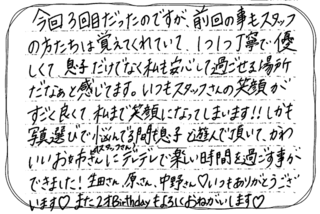 今回3回目だったのですが、前回の事もスタッフ
の方たちは覚えてくれていて、1つ1つ丁寧で優
しくて、息子だけでなく私も安心して過ごせる場所
だなぁと感じてます。いつもスタッフさんの笑顔が
すごく良くて私まで笑顔になってしまいます!!しかも
写真選びで悩んでる間息子と遊んで頂いて、かわ
いいお姉さんにデレデレで楽しい時間を過ごす事が
スタッフさん
できました!生田さん、原さん、中野さん♡いつもありがとうござい
います♡また2才Birthdayもよろしくおねがいします♡